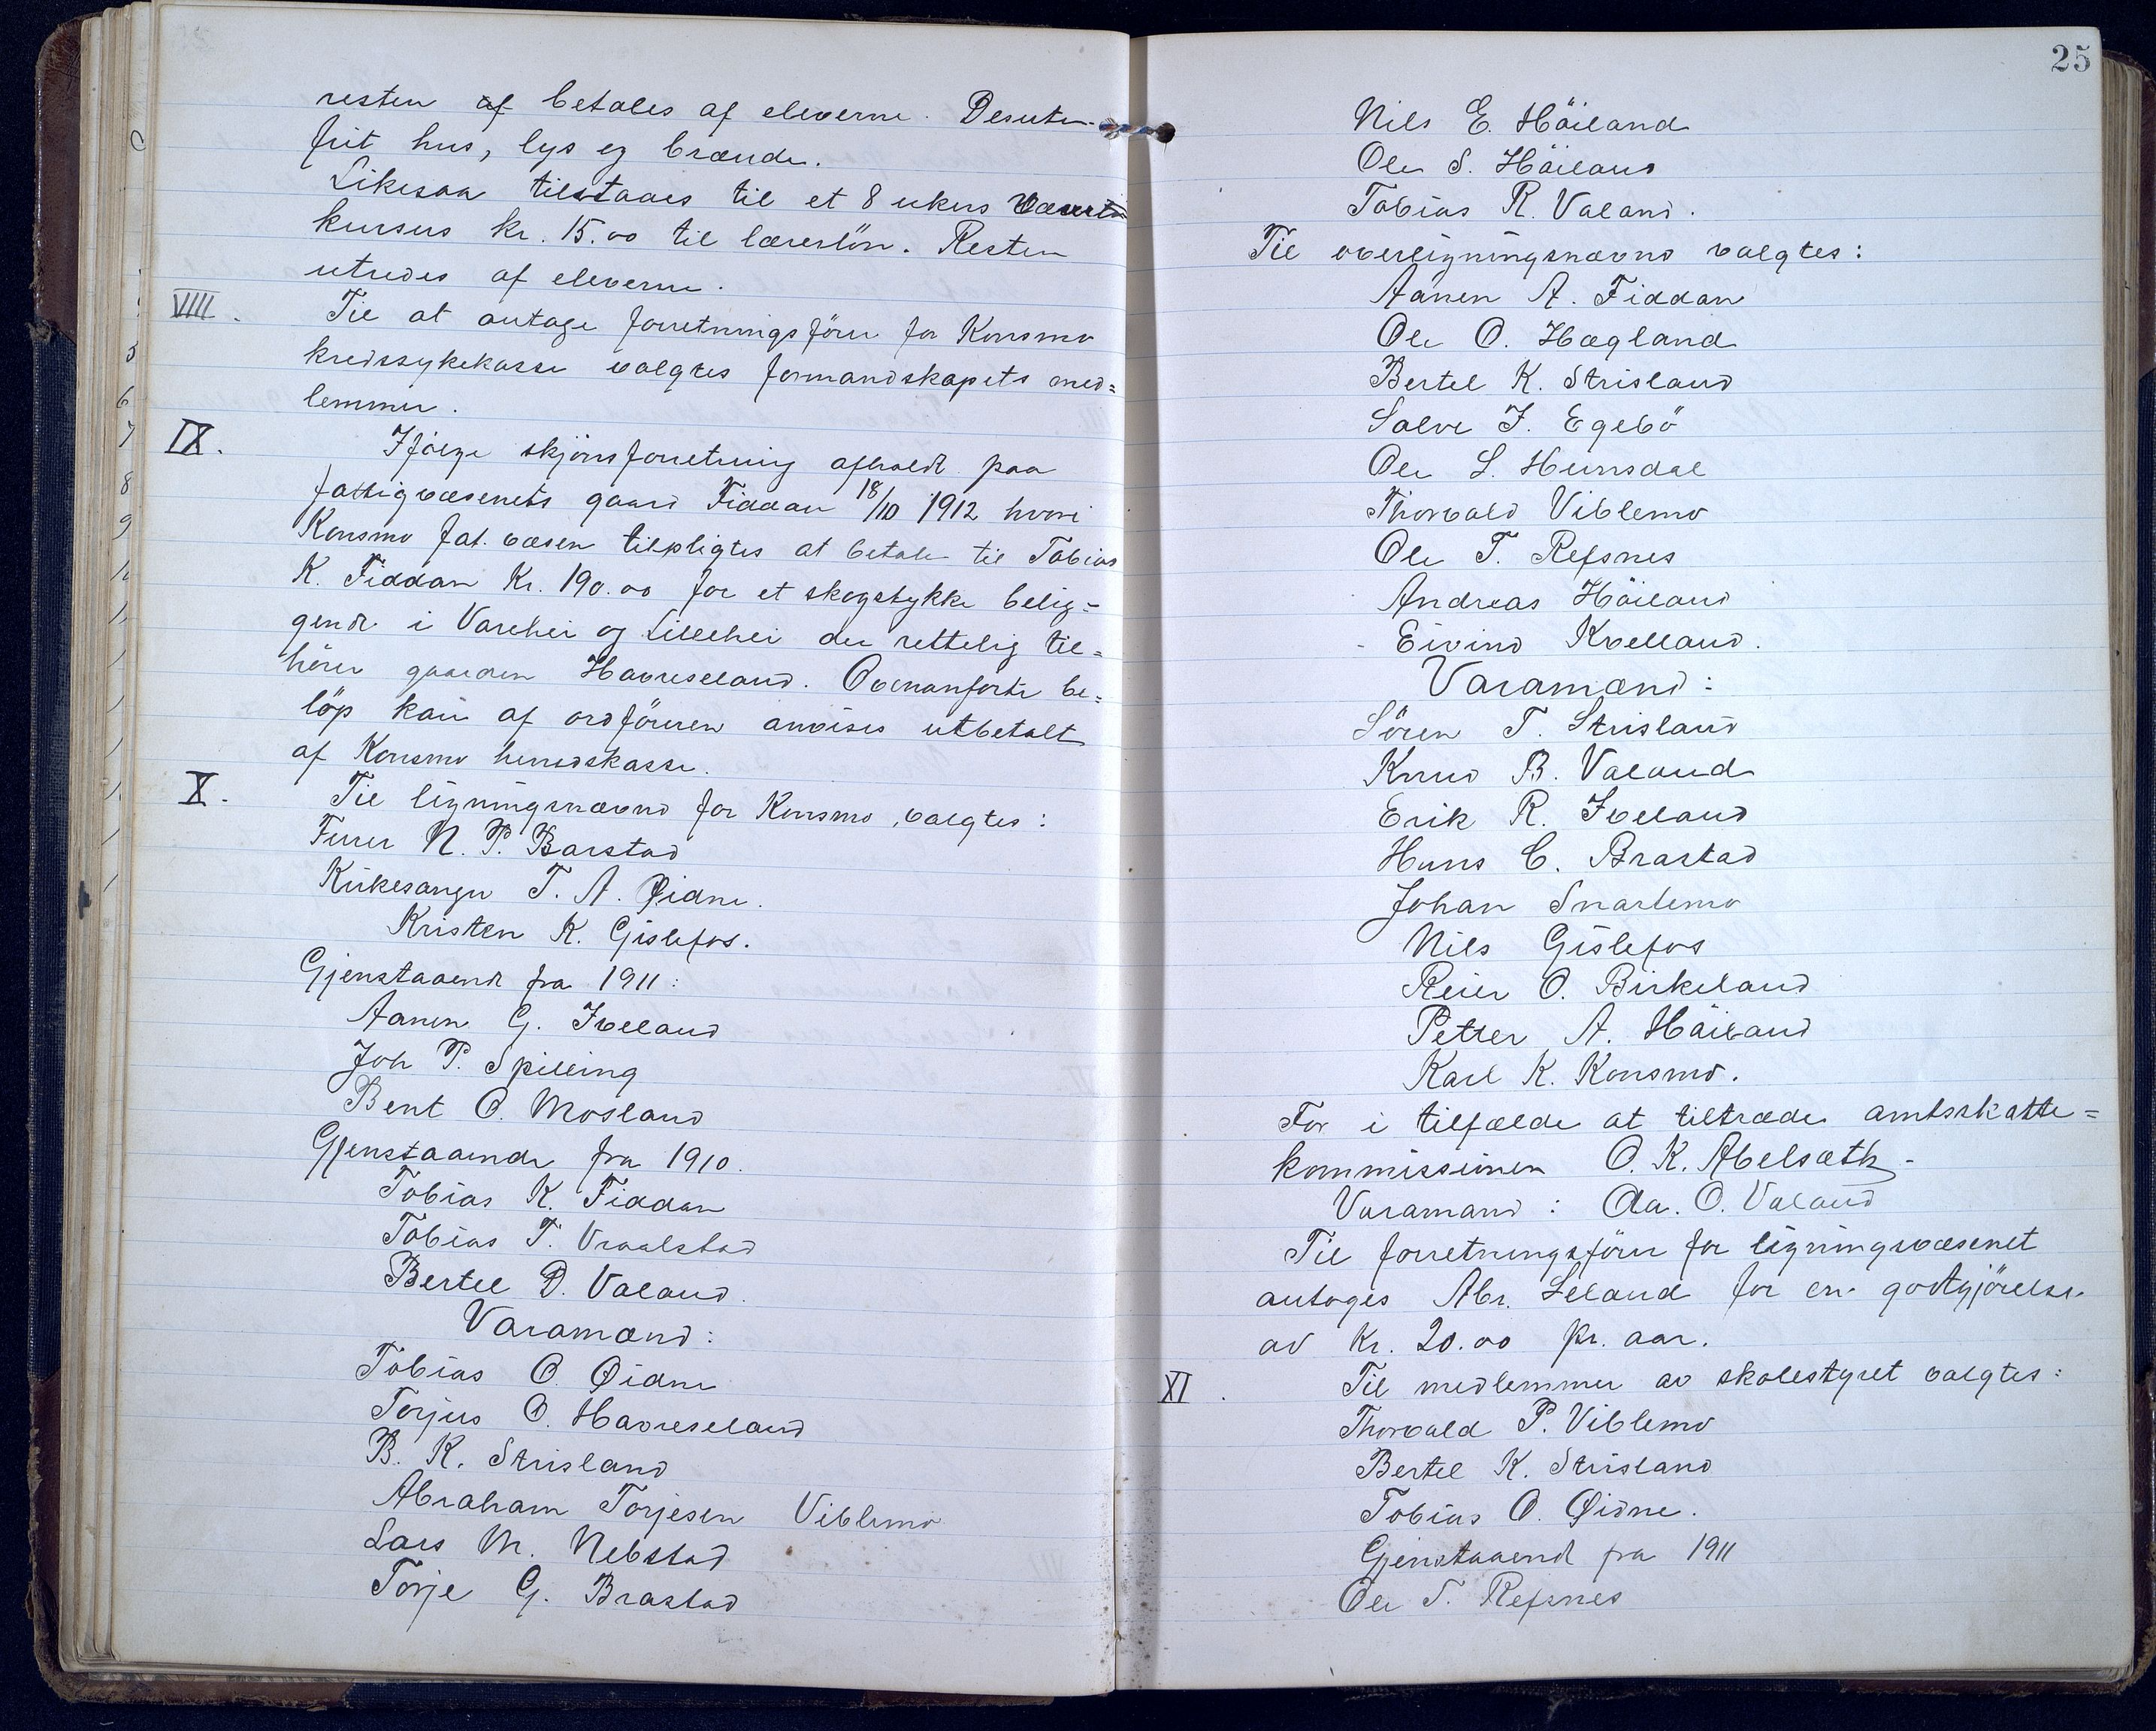 resten af betales af eleverne. Desuten
frit hus, lys og brænde.
Likesaa tilstaaes til et 8 ukers
kursus kr. 15.00 til lærerlön. Resten
utredes af eleverne.
VIIII. Til at antage forretningsförer for Konsmo
kredssykekasse valgtes formandskapets med=
lemmer.
IX. Ifölge skjönsforretning afholdt paa
fattigvæsenets gaard Fiddan 18/10 1912 hvori
Konsmo fat. væsen tilpligtes at betale til Tobias
K. Fiddan Kr. 190.00 for et skogstykke belig=
gende i Varehei og Lillehei der rettelig til=
hörer gaarden Havreseland. Ovenanförte be=
löp kan af ordföreren anvises utbetalt
af Konsmo herredskasse.
X. Til ligningsnævnd for Konsmo, valgtes:
Furer N. P. Barstad
Kirkesanger T. A. Øidne.
Kristen K. Gislefos.
Gjenstaaende fra 1911:
Aanen G. Iveland
Joh P. Spilling
Bent O. Mosland
Gjenstaaende fra 1910.
Tobias K. Fiddan
Tobias T. Vraalstad
Bertel D. Valand.
Varamænd:
Tobias O. Øidne
Torjus O. Havreseland
B. K. Strisland
Abraham Torjesen Viblemo
Lars M. Nebstad
Torje G. Brastad
25
Nils E. Höiland
Ole S. Höiland
Tobias R. Valand.
Til overligningsnævnd valgtes:
Aanen A. Fiddan
Ole O. Hægland
Bertel K. Strisland
Salve J. Egebö
Ole L. Hunsdal
Thorvald Viblemo
Ole T. Refsnes
Andreas Höiland
Eivind Kvelland.
Varamænd:
Sören T. Strisland
Knud B. Valand
Erik R. Iveland
Hans C. Brastad
Johan Snartemo
Nils Gislefos
Reier O. Birkeland
Petter A. Höiland
Karl K. Konsmo.
For i tilfælde at tiltræde amtsskatte=
kommissionen O. K. Abelsæth.
Varamand: Aa. O. Valand
Til forretningsförer for ligningsvæsenet
antoges Abr. Leland for en godtgjörelse
av Kr. 20.00 pr. aar.
XI. Til medlemmer av skolestyret valgtes:
Thorvald P. Viblemo
Bertel K. Strisland
Tobias O. Øidne.
Gjenstaaende fra 1911
Ole T. Refsnes